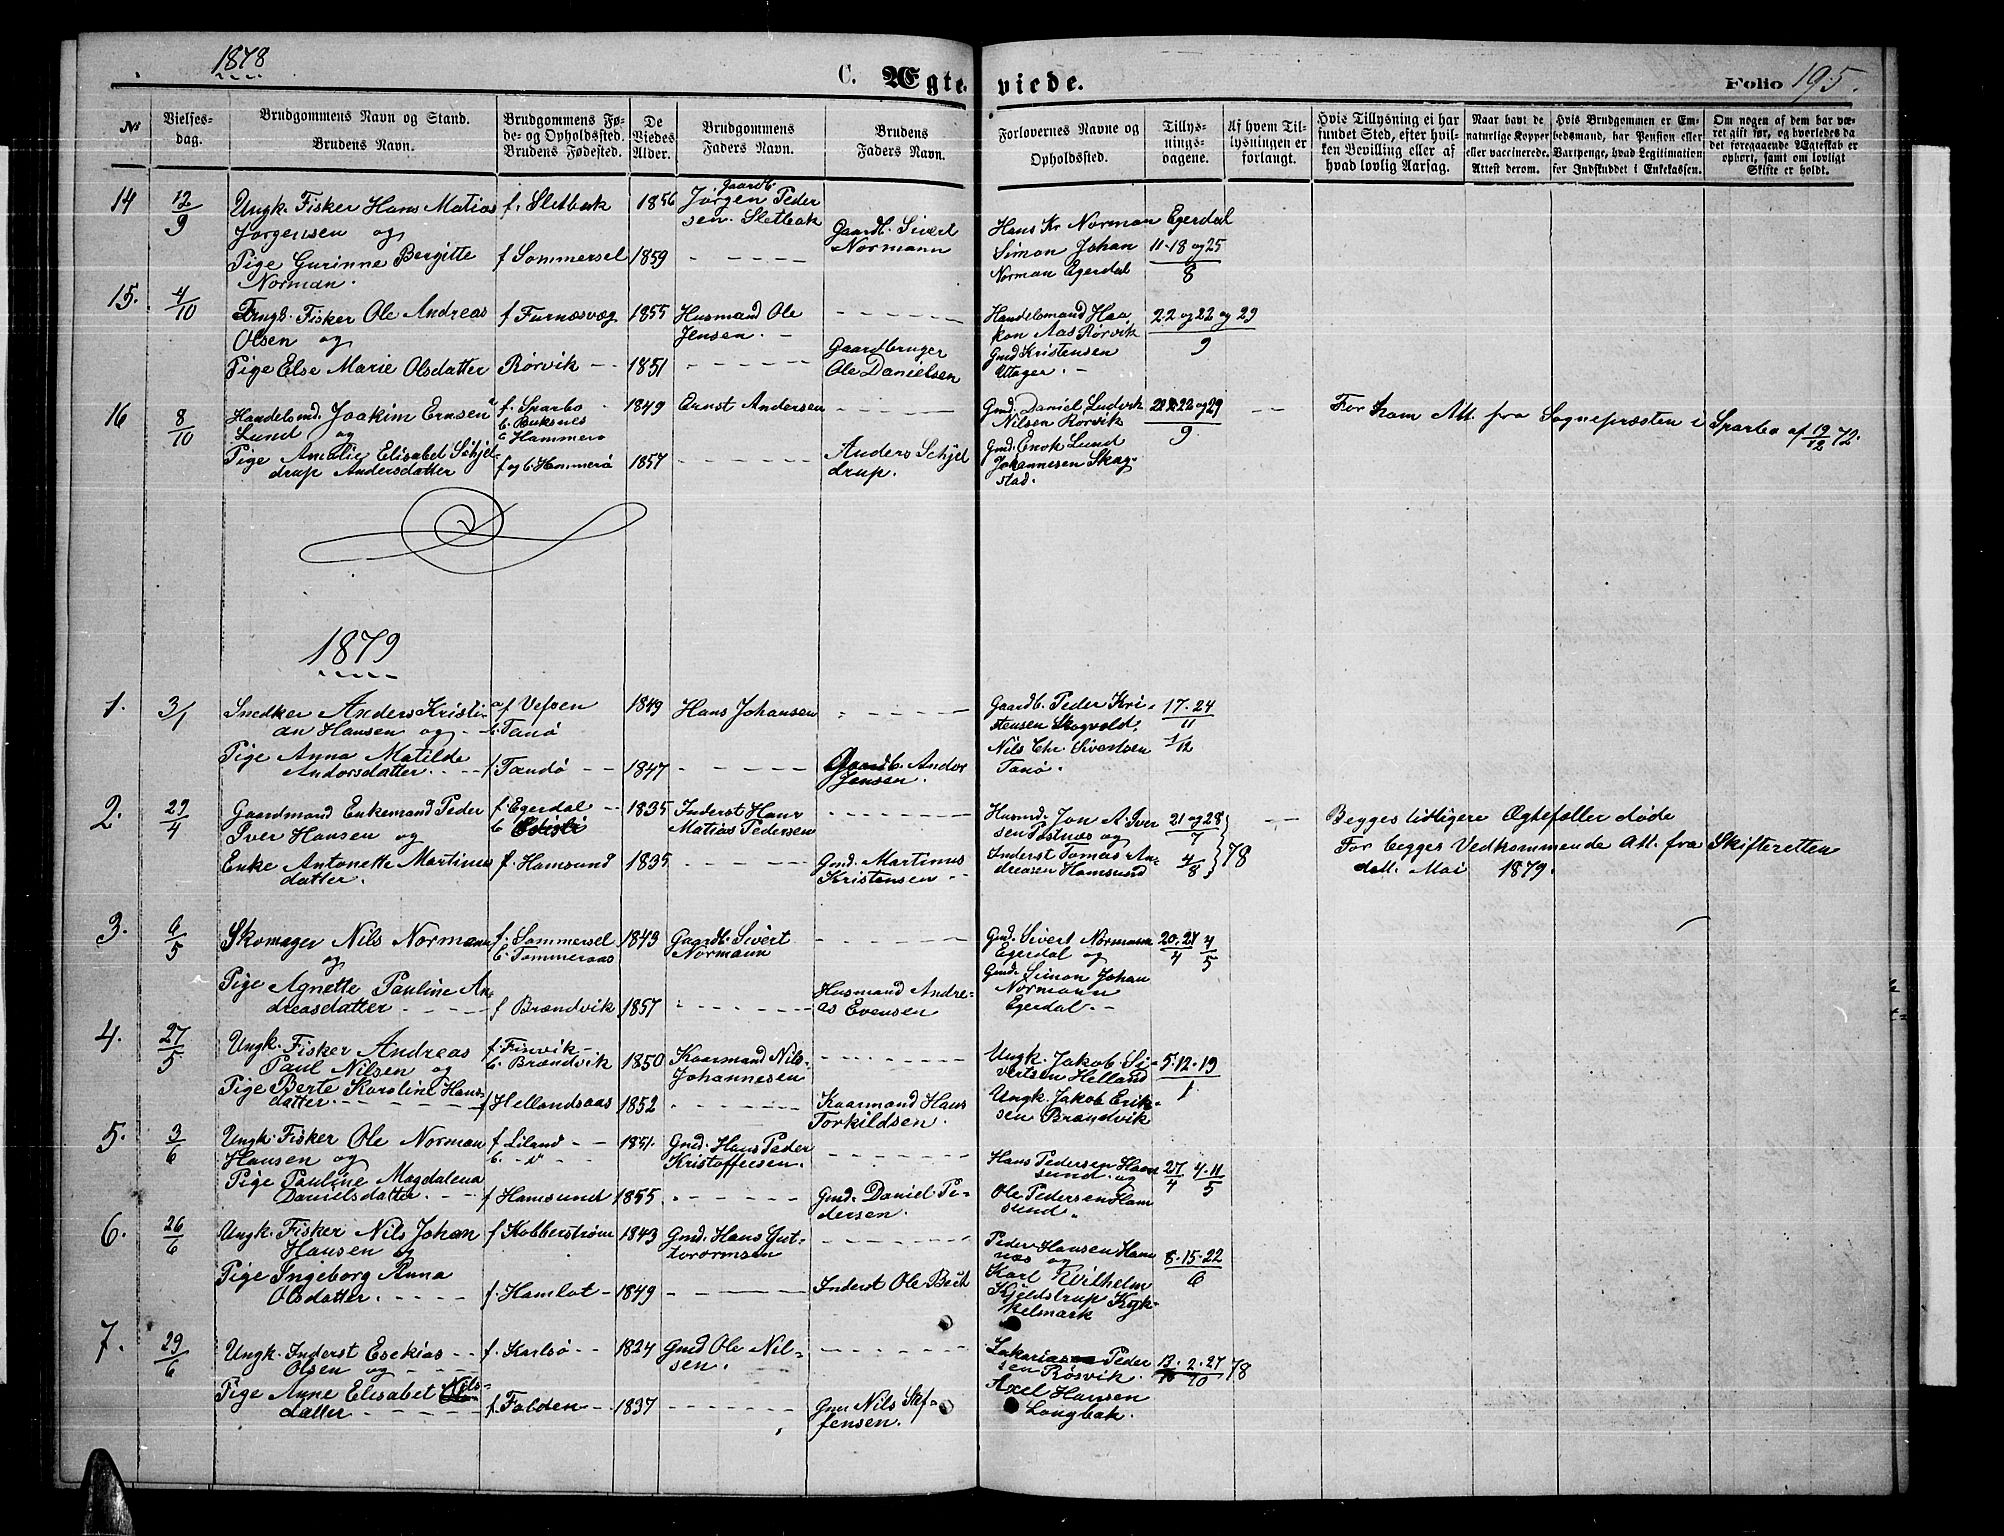 1878
C. Ægteviede.
Folio 195.
No
Vielses-
dag.
Brudgommens Navn og Stand.
Brudens Navn.
Brudgommens Fø-
de- og Opholdssted.
Brudens Fødested.
De
Viedes
Alder.
Brudgommens
Faders Navn.
Brudens
Faders Navn.
Forlovernes Navne og
Opholdssted.
Tillys-
nings-
dagene.
Af hvem Til-
lysningen er
forlangt.
Hvis Tillysning ei har
fundet Sted, efter hvil-
ken Bevilling eller af
hvad lovlig Aarsag.
Naar havt de
naturlige Kopper
eller vaccinerede.
Attest derom.
Hvis Brudgommen er Em-
bedsmand, har Pension eller
Vartpenge, hvad Legitimation
for Indskuddet i Enkekassen.
Om nogen af dem har væ-
ret gift før, og hvorledes da
det foregaaende Ægteskab er
ophørt, samt om lovligt
Skifte er holdt.
14 12/9 Ungk. Fisker Hans Matias f. Sletbak 1856 Jørgen Peder
Gaardb.
Jørgensen og sen Sletbak Gaardb. Sivert Hans Kr Norman Egerdal
Normann Simon Johan 11-18 og 25
Pige Gurinne Bergitte f Sommersel 1859 Norman Egerdal 8
Norman.
15. 4/10 Ungk. Fisker Ole Andreas f Furnæsvæg 1855 Husmand Ole Handelsmand Haa 22 og 29
Olsen og Jensen. kon Aas Rørvik 9
Gaardbruger Gmd Kristensen
Pige Else Marie Olsdatter Rørvik 1851 Ole Danielsen Uttager.
16 8/10 Handelsmd. Joakim Ernsen f. Sparbo 1849 Ernst Andersen Gmd. Daniel Ludvik 22 og 29 For ham Att. fra Sognepræsten i Sparbo af 19/12 72.
Lund og b. Buksnes Nilsen Rørvik 9
b Hammerø Gmd. Enok Lund
Pige Amalie Elisabet Schjel- Anders Schjel
drup Andersdatter f og b Hammerø 1857 drup. Johannesen Skag
stad.
1879
1. 3/1 Snedker Anders Kristi- f Vefsen 1849 Hans Johansen Gaardb. Peder Kri 17-24
an Hansen og b. Tanø stensen Skogvold 11
Pige Anna Matilde Nils Chr. Sivertsen 1/12
Andorsdatter. f. Tandø 1847 Gaardb. Andor Tanø.
Jensen.
2. 29/4 Gaardmand Enkemand Peder f. Egerdal 1835 Inderst Hans Husmd. Jon A. Iver 21 og 28 Begges tidligere Ægtefæller døde
Iver Hansen og b Matias Pedersen sen Postnæs og 7 For begges Vedkommende Att. fra Skifteretten
Enke Antonette Martinus f. Hamsund 1835 Gmd. Martinus Inderst Tomas An- 4/8 78 datt. Mai 1879.
datter. Kristensen dreasen Hamsund
3. 6/5 Skomager Nils Normann f. Sommersel 1843 Gaardb. Sivert Gmd. Sivert Normann 20-27 4
og b. Tommeraas Normann Egerdal og 4 5
Gmd. Simon Johan
Pige Agnette Pauline An Husmand Andre- Normann
dreasdatter f Brændvik 1857 as Evensen Egerdal.
4. 27/5 Ungk. Fisker Andreas f. Finvik 1850 Kaarmand Nils Ungk. Jakob Si- 5-12-19
Paul Nilsen og b. Brændvik Johannesen vertsen Helland 1
Pige Berte Karoline Hans- Ungk. Jakob Erik-
datter. f Hellandsaas 1852 Kaarmand Hans sen Brandvik
Torkildsen.
5. 3/6 Ungk. Fisker Ole Norman f. Liland 1851. Gmd. Hans Peder
Hansen og b. -"- Kristoffersen. Hans Pedersen Ham 27 4-11
Pige Pauline Magdalena sund. og 4 5
Danielsdatter. f Hamsund 1855 Gmd. Daniel Pe- Ole Pedersen Ham
dersen. sund
6. 26/6 Ungk. Fisker Nils Johan f Kobberstrøm 1843 Gmd. Hans Gut- Peder Hansen Ham
Hansen og tormsen næs og 8-15-22
Pige Ingeborg Anna Karl Wilhelm 6
Olsdatter. f. Hamlot 1849 Inderst Ole Beck Kjeldstrup Kyk-
kelmark
7. 29/6 Ungk. Inderst Esekias f. Karlsø 1824 Gmd Ole Nil- Zakarias Peder 13. 2-27 78
Olsen og sen. sen Røsvik. 10
Pige Anne Elisabet Nils- Axel Hansen
datter f. Folden 1837 Gmd Nils Stef- Longbak.
fensen.